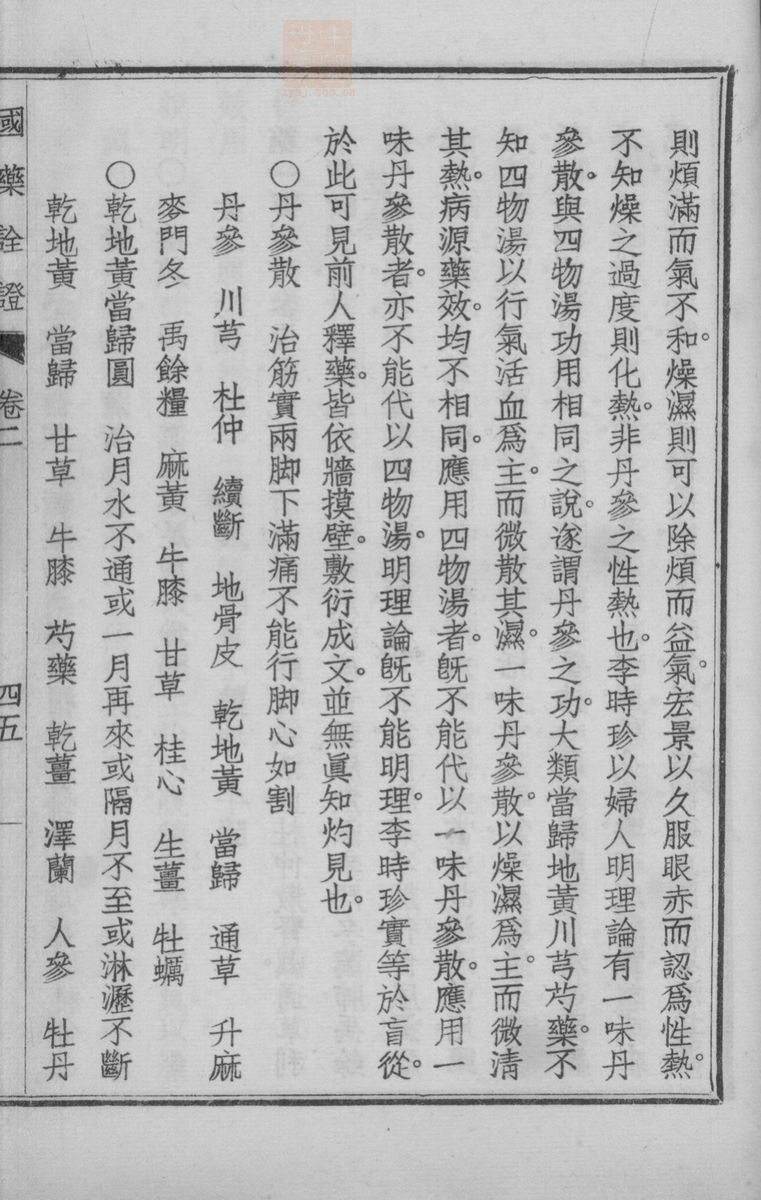 則煩滿而氣不和。燥濕則可以除煩而益氣。宏景以久服眼赤而認爲性熱。
不知燥之過度則化熱。非丹參之性熱也。李時珍以婦人明理論有一味丹
參散。與四物湯功用相同之說。遂謂丹參之功。大類當歸地黃川芎芍藥。不
知四物湯以行氣活血爲主。而微散其濕。一味丹參散。以燥濕爲主。而微清
其熱。病源藥效。均不相同。應用四物湯者。旣不能代以一味丹參散。應用一
味丹參散者。亦不能代以四物湯。明理論旣不能明理。李時珍實等於盲從。
於此可見前人釋藥。皆依牆摸壁。敷衍成文。並無眞知灼見也。
〇丹參散　治筋實兩脚下滿痛不能行脚心如割
丹參　川芎　杜仲　續斷　地骨皮　乾地黃　當歸　通草　升麻
麥門冬　禹餘糧　麻黃　牛膝　甘草　桂心　生薑　牡蠣
〇乾地黃當歸圓　治月水不通或一月再來或隔月不至或淋瀝不斷
乾地黃　當歸　甘草　牛膝　芍藥　乾薑　澤蘭　人參　牡丹
國藥詮證　卷二　四五